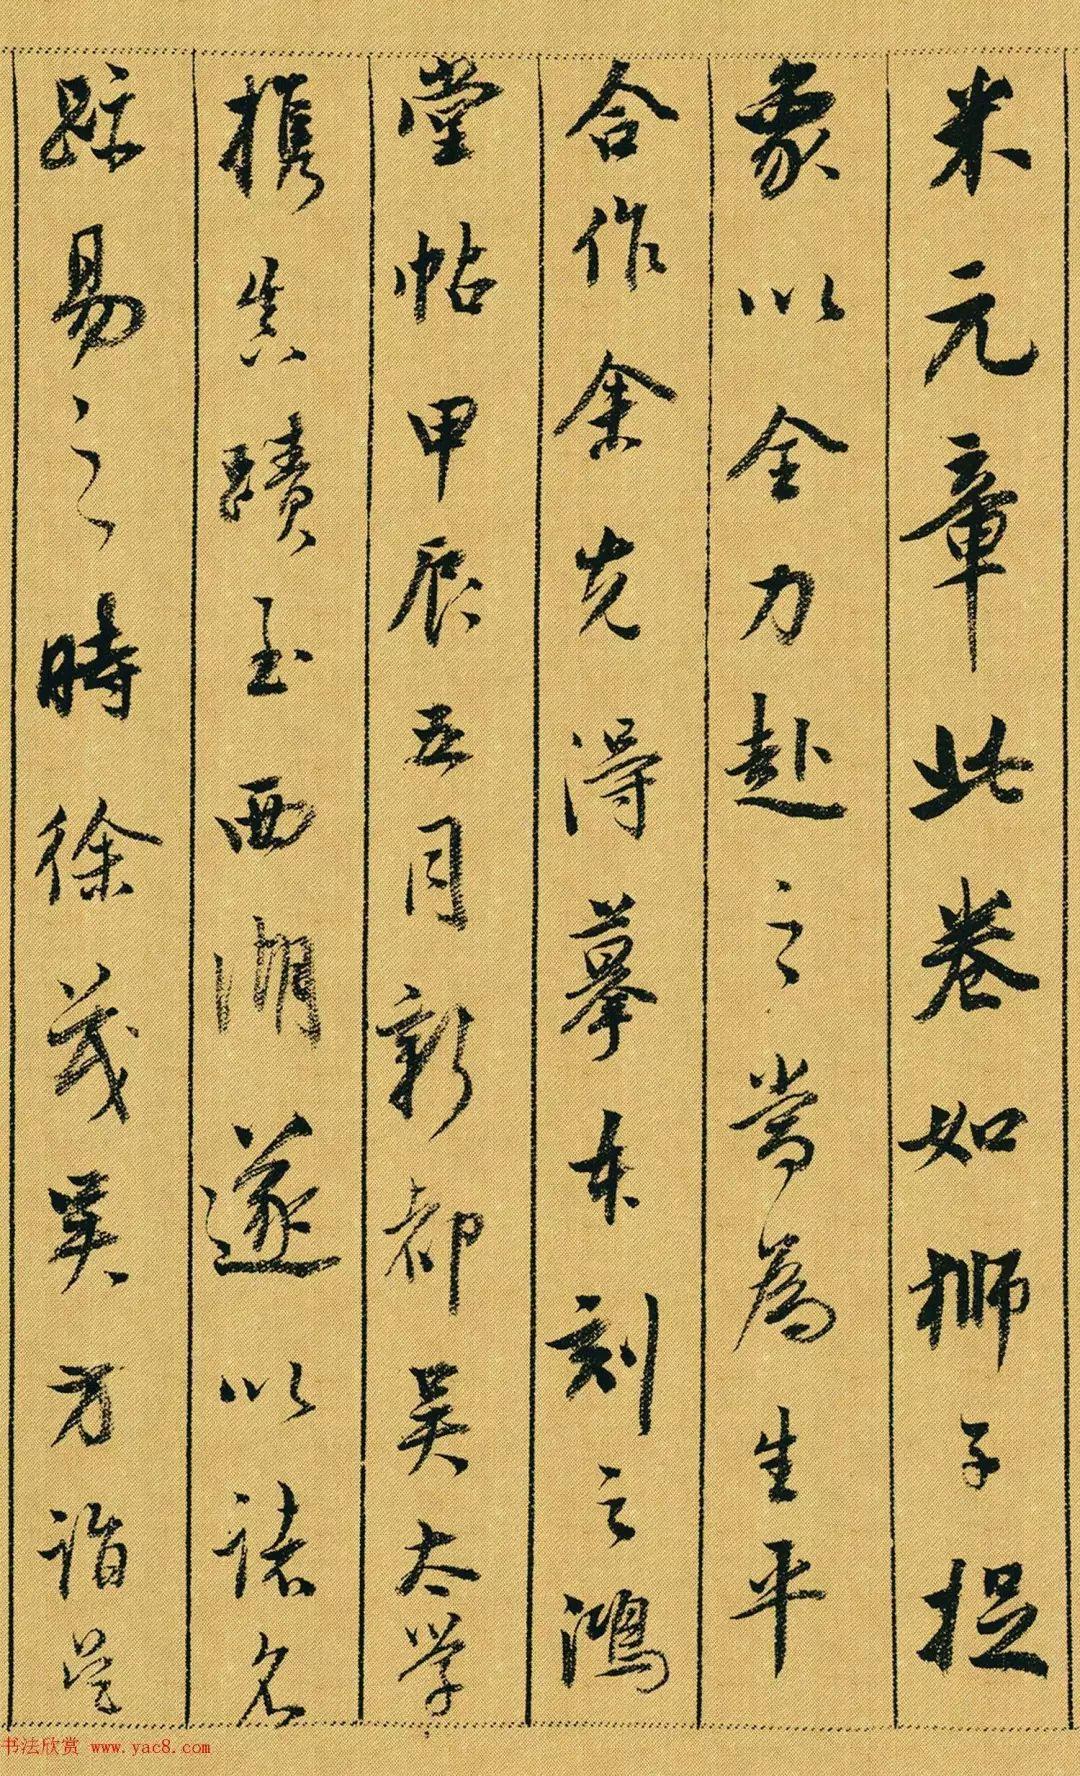 米元章此卷如狮子捉
象以全力赴之当为生平
合作余先得摹本刻之鸿
堂帖甲辰五月新都吴太学
携真蹟至西湖遂以诸名
跡易之時徐茂吴方诣吴
书法欣赏 www.yac8.com